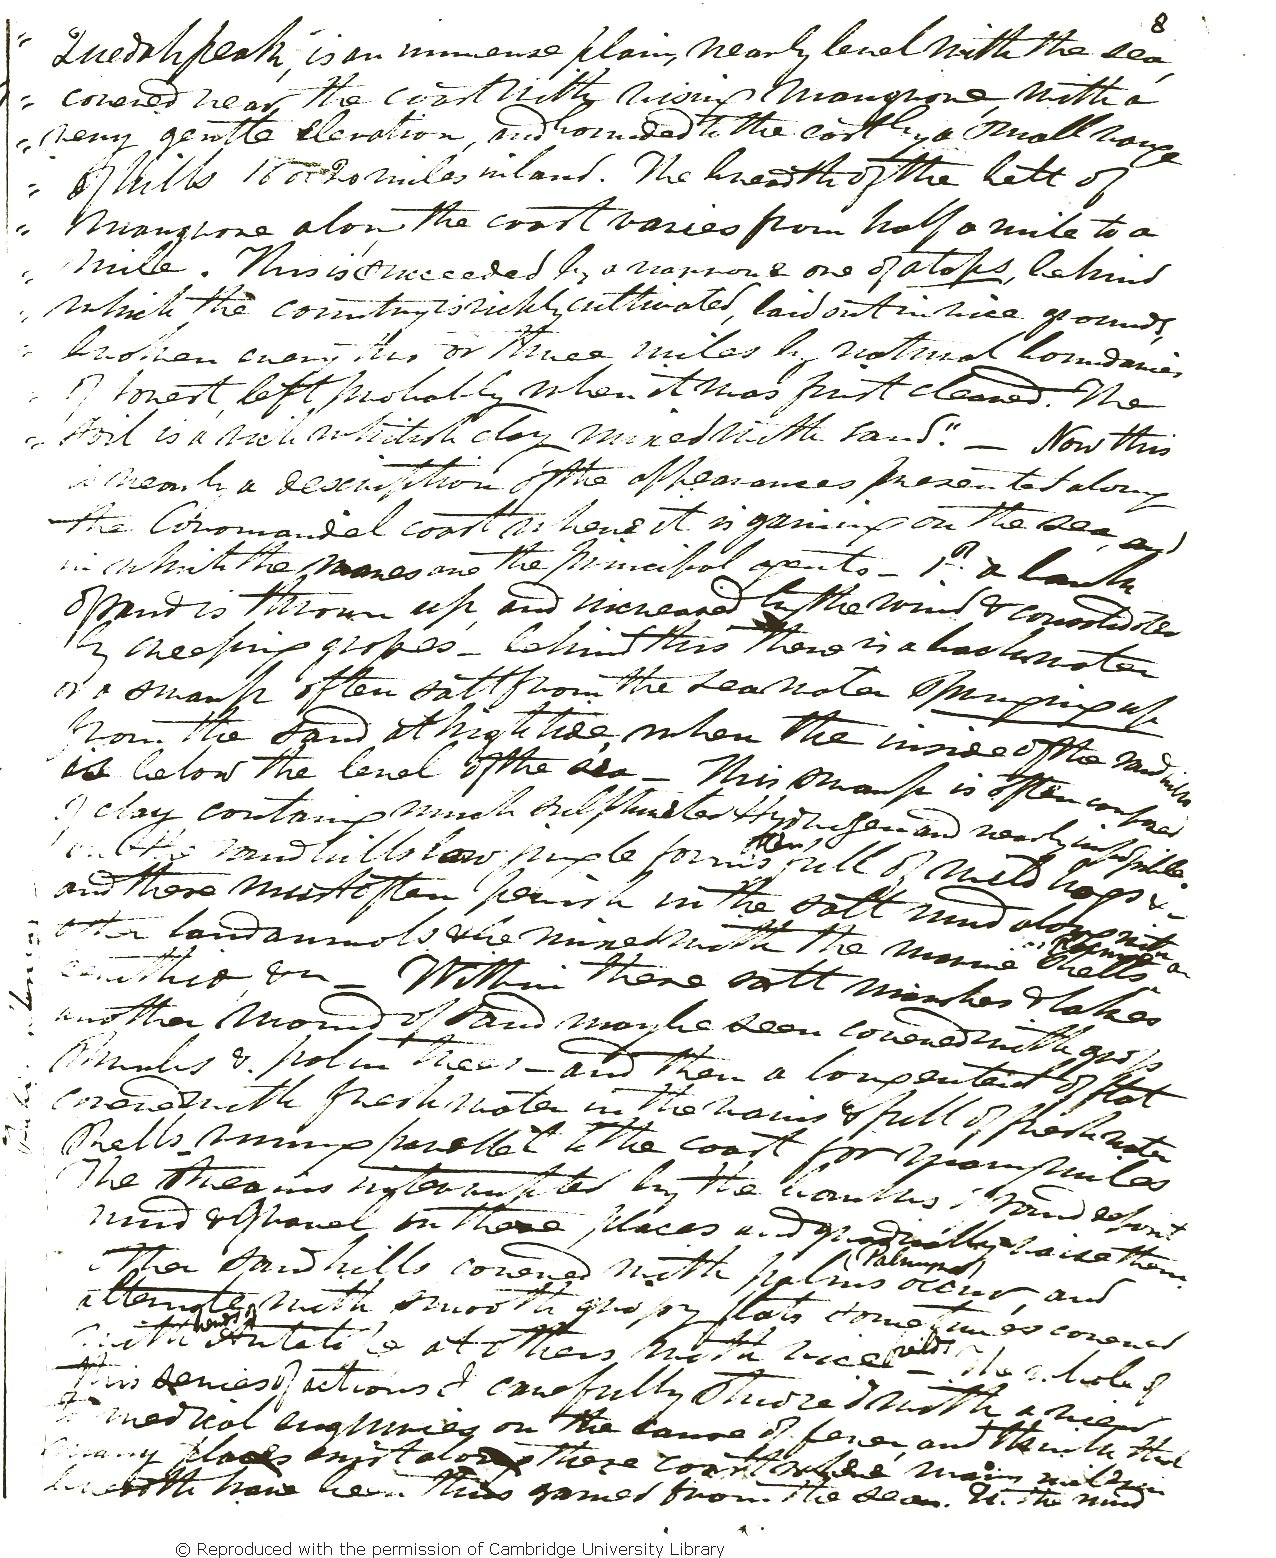 8
" Quedah peak, is an immense plain, nearly level with the sea,
" covered near the coast with rising mangrove, with a
" very gentle elevation, and bounded to the east by a small range
" of hills 18 or 20 miles inland. The breadth of the belt of
" mangrove along the coast varies from half a mile to a
" mile. This is succeeded by a narrow one of ataps, behind
" which the country is richly cultivated, laid out in rice grounds,
" broken every two or three miles by natural boundaries
" of forest, left probably when it was first cleared. The
" soil is a rich whitish clay mixed with sand." — Now this
is nearly a description of the appearances presented along
the Coromandel coast where it is gaining on the sea, and
in which the waves are the principal agents — 1st a bank
of sand is thrown up, and increased by the wind & consolidated
by creeping grapes — behind this there is a backwater
or a swamp often salt from the sea water springing up
from the sand at high tide, when the inside of the sand hills
is below the level of the sea — This swamp is often composed
of clay containing much sulphurated Hydrogen and nearly impassable.
on the sand hills low jungle forms often full of wild hogs &c
and these must often perish in the salt mud along with
other land animals & be mixed with the marine shells
cerithia, &c — Within these salt marshes & lakes
another mound of sand may be seen covered with grass
shrubs & palm trees — and then a long extent of flat
covered with fresh water in the rains & full of fresh water
shells running parallel to the coast for many miles
The streams interrupted by the banks of sand deposit
mud & gravel in these places and gradually raise them.
Other sand hills covered with palms (Palmyra) occur, and
alternate with smooth grassy flats sometimes covered
with herds of at others with rice fields — The whole of
this series of actions I carefully studied with a view
to medical enquiries on the cause of fever, and think that
many places exist along these coasts where many miles in
breadth have been thus gained from the sea. If the mud